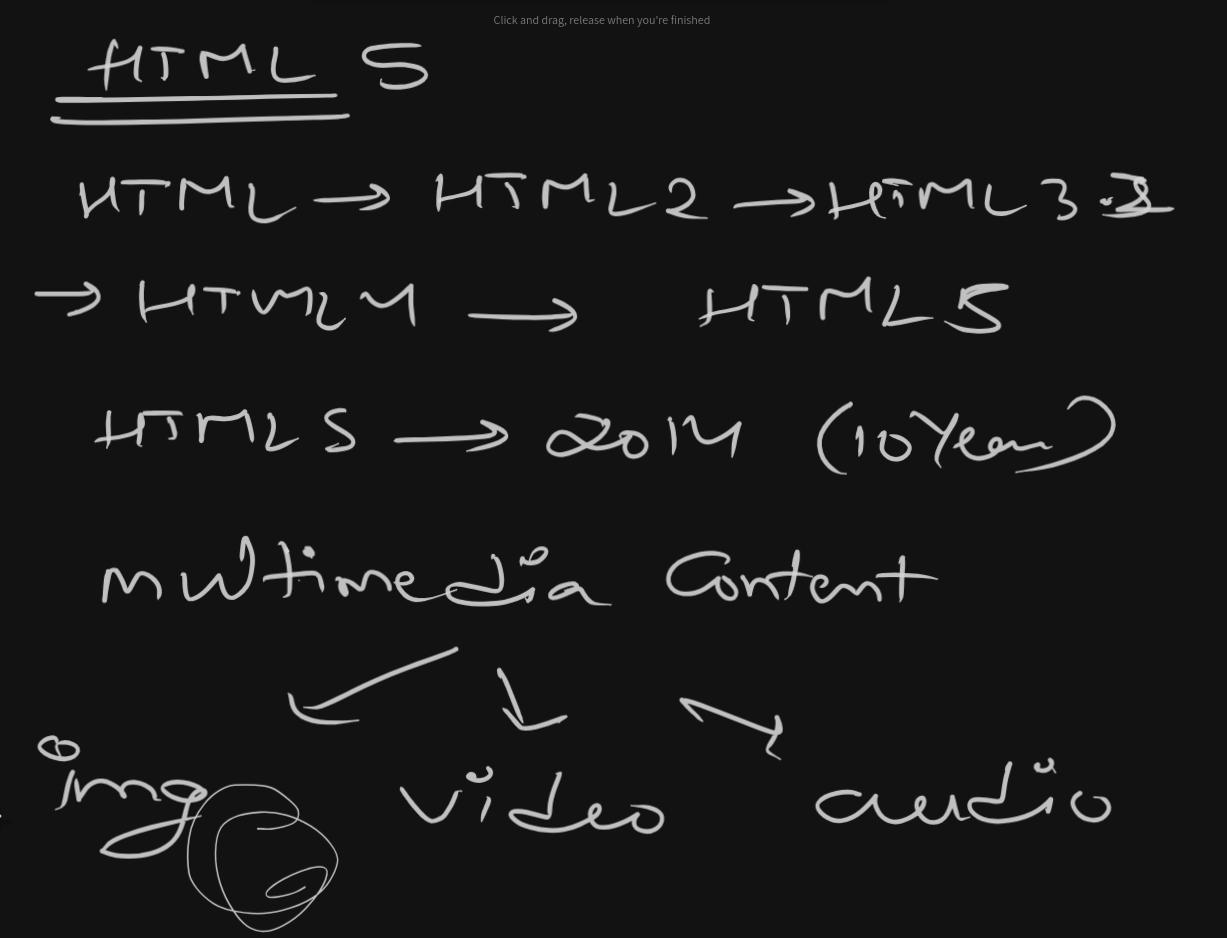 Click and drag, release when you're finished
HTML 5
HTML → HTML2 → HTML 3.2
→ HTML4 → HTML5
HTML5 → 2014 (10 Year)
multimedia Content
img video audio